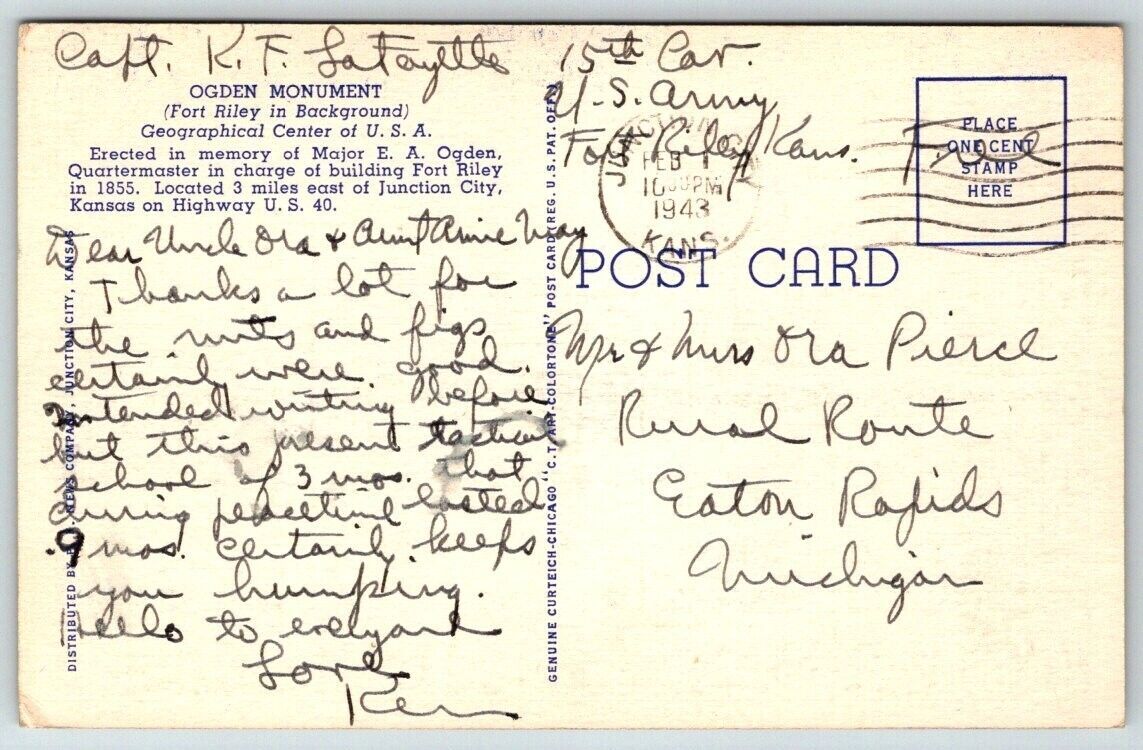 Capt. K. F. Lafayette 15th Cav.
U. S. Army
Fort Riley, Kans. Free
OGDEN MONUMENT
(Fort Riley in Background)
Geographical Center of U. S. A.
Erected in memory of Major E. A. Ogden,
Quartermaster in charge of building Fort Riley
in 1855. Located 3 miles east of Junction City,
Kansas on Highway U. S. 40.
Dear Uncle Ora & Aunt Annie May
Thanks a lot for
the nuts and figs
certainly were good.
Intended writing before
but this present tactical
school of 3 mos. that
during peacetime lasted
9 mos. certainly keeps
you humping.
Hello to everyone
Love
Ken
DISTRIBUTED BY NEWS COMPANY, JUNCTION CITY, KANSAS
GENUINE CURTEICH-CHICAGO "C. T. ART-COLORTONE" POST CARD (REG. U. S. PAT. OFF.)
JUNCTION
FEB 1
10 00 PM
1943
KANS.
PLACE
ONE CENT
STAMP
HERE
POST CARD
Mr & Mrs Ora Pierce
Rural Route
Eaton Rapids
Michigan